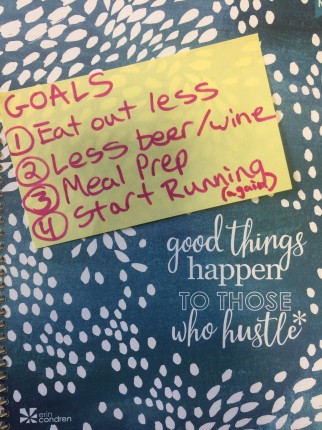 GOALS
① Eat out less
② Less beer/wine
③ Meal Prep
④ Start Running
(again)
good things
happen
TO THOSE
who hustle*
erin
condren